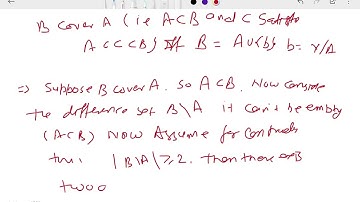 B cover A (i.e A⊂B and C satisfy
A⊂C⊂B) Iff B = A∪{b} b =
⇒ Suppose B cover A. So A⊂B. Now consider
the difference set B\A it can't be empty
(A⊂B) Now Assume for contradi
this |B\A|≥2. then there
two